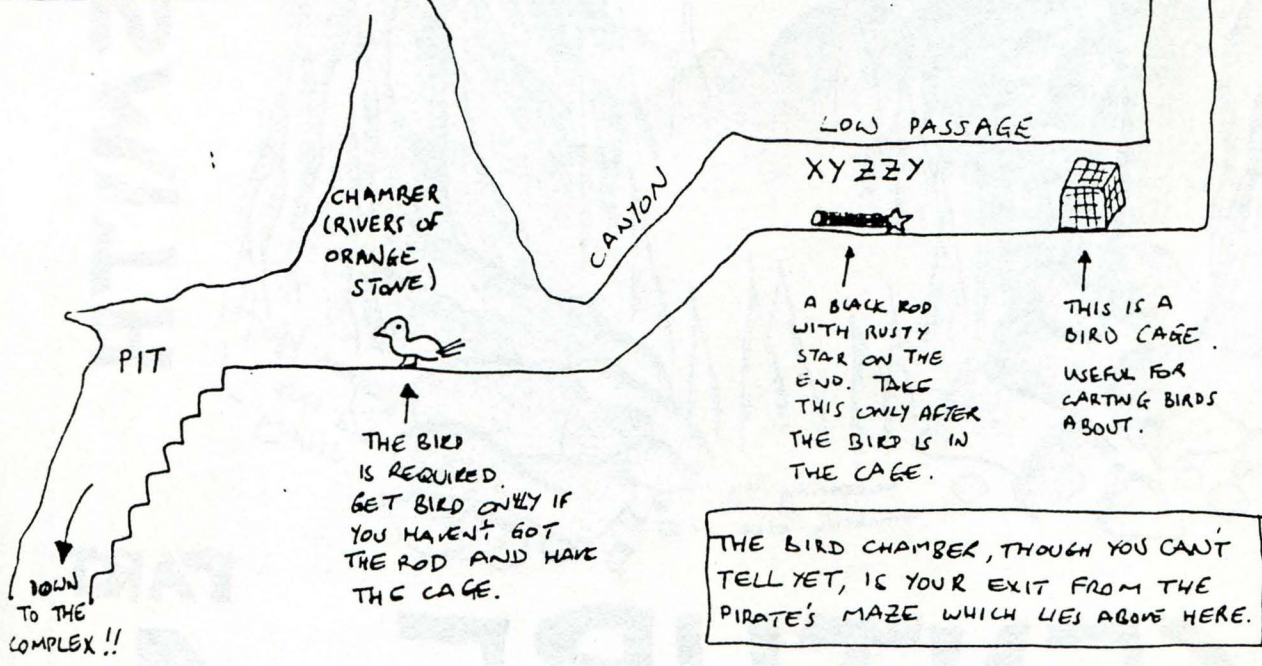 LOW PASSAGE
XYZZY
CANYON
CHAMBER
(RIVERS OF
ORANGE
STONE)
PIT
A BLACK ROD
WITH RUSTY
STAR ON THE
END. TAKE
THIS ONLY AFTER
THE BIRD IS IN
THE CAGE.
THIS IS A
BIRD CAGE.
USEFUL FOR
CARTING BIRDS
ABOUT.
THE BIRD
IS REQUIRED.
GET BIRD ONLY IF
YOU HAVEN'T GOT
THE ROD AND HAVE
THE CAGE.
DOWN
TO THE
COMPLEX!!
THE BIRD CHAMBER, THOUGH YOU CAN'T
TELL YET, IS YOUR EXIT FROM THE
PIRATE'S MAZE WHICH LIES ABOVE HERE.